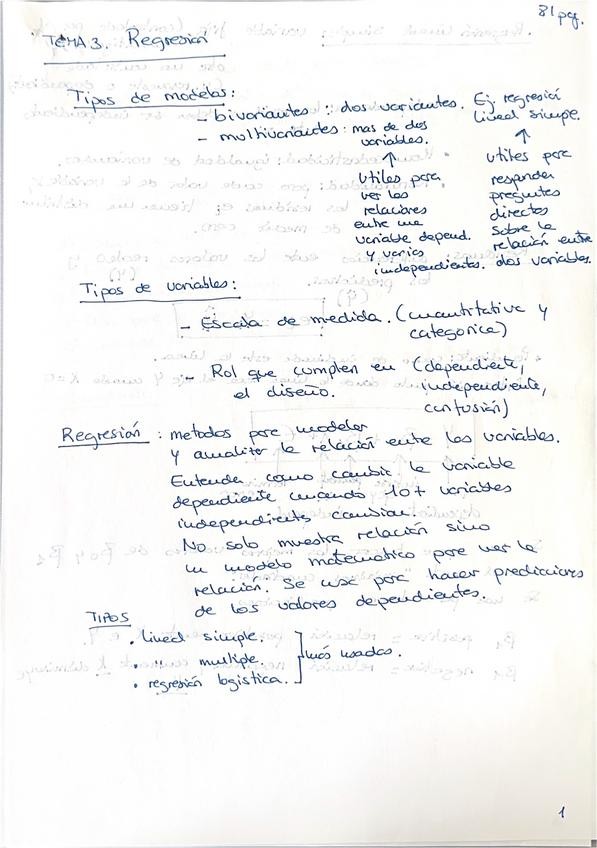 81 pg.
TEMA 3. Regresión
Tipos de modelos:
- bivariantes: dos variantes. Ej. regresión lineal simple.
- multivariantes: mas de dos variables.
↑
utiles para
ver las
relaciones
entre una
variable depend.
y varias
independients.
↑
utiles para
responder
preguntes
directes
sobre la
relación entre
dos variables.
Tipos de variables:
- Escala de medida. (cuantitativa y
categorica)
- Rol que cumplen en (dependiente,
el diseño. independiente,
confusión)
Regresión: metodos para modelar
y analizar la relación entre las variables.
Entender como cambia la variable
dependiente cuando 1 o + variables
independients cambian.
No solo muestra relación sino
un modelo matematico para ver la
relación. Se usa para hacer predicciones
de los valores dependientes.
TIPOS
• lineal simple.
• " multiple.
• regresión logistica.
más usados.
1